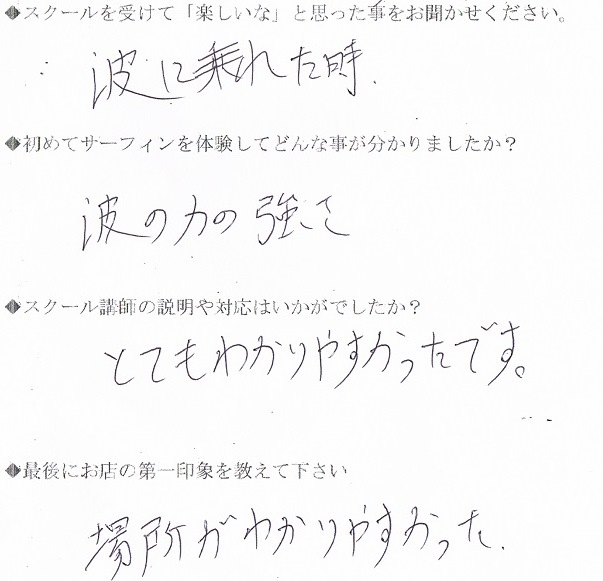 ◆スクールを受けて「楽しいな」と思った事をお聞かせください。
波に乗れた時.
◆初めてサーフィンを体験してどんな事が分かりましたか？
波の力の強さ
◆スクール講師の説明や対応はいかがでしたか？
とてもわかりやすかったです。
◆最後にお店の第一印象を教えて下さい
場所がわかりやすかった.